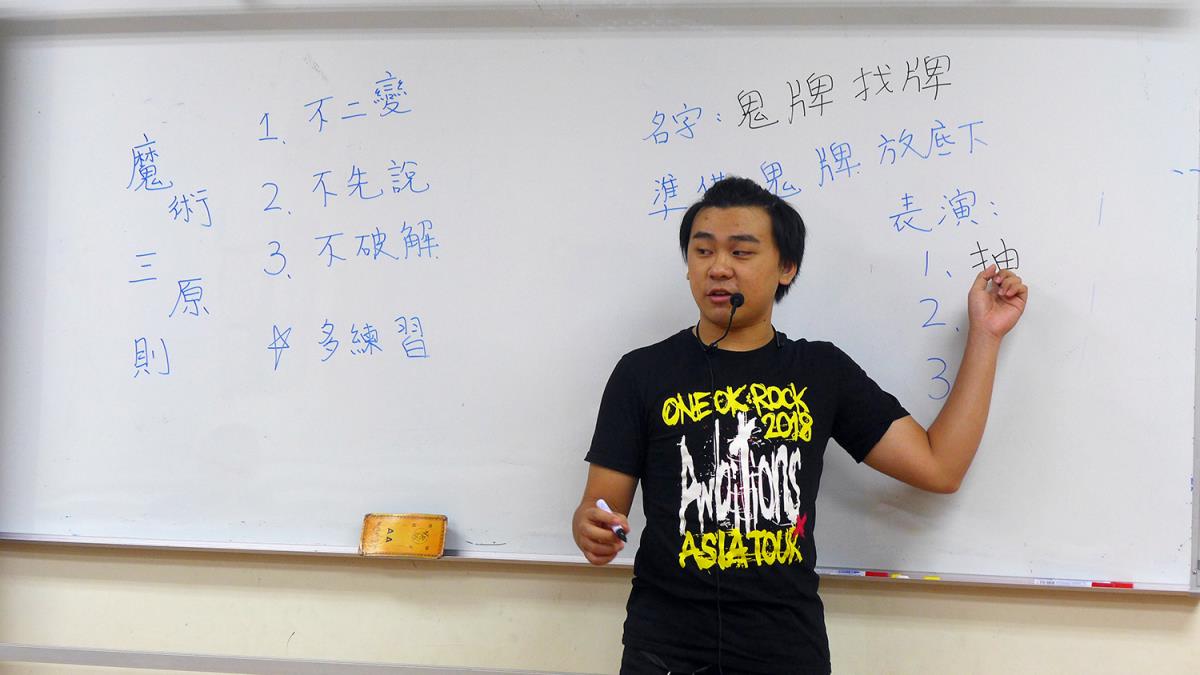 魔術三原則
1. 不二變
2. 不先說
3. 不破解
☆ 多練習
名字：鬼牌找牌
準備鬼牌放底下
表演：
1、抽
2、
3
ONE OK ROCK
2018
Ambitions
ASIA TOUR